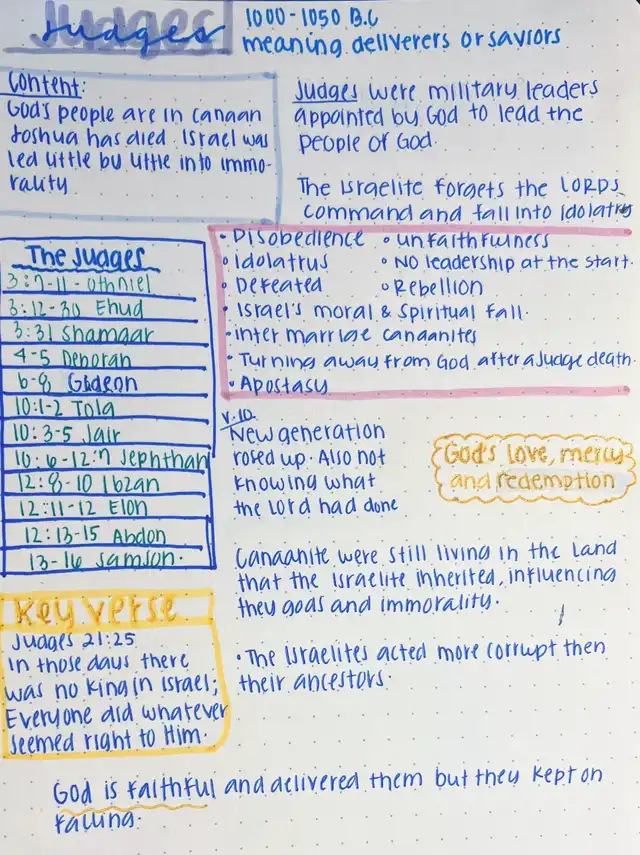 Judges
1000-1050 B.C
meaning deliverers or saviors
Content:
God's people are in canaan
Joshua has died. Israel was
led little by little into immo-
rality
Judges were military leaders
appointed by God to lead the
people of God.
The Israelite forgets the LORDS
command and fall into idolatry
• Disobedience • unfaithfulness
• Idolatrus • NO leadership at the start.
• Defeated • Rebellion
• Israel's moral & spiritual fall.
• inter marrige canaanites
• Turning away from God after a Judge death.
• Apostasy
The Judges
3:7-11 - Othniel
3:12-30 Ehud
3:31 Shamgar
4-5 Deborah
6-8 Gideon
10:1-2 Tola
10:3-5 Jair
10:6-12:7 Jephthah
12:8-10 Ibzan
12:11-12 Elon
12:13-15 Abdon
13-16 Samson.
v.10.
New generation
rosed up. Also not
knowing what
the Lord had done
God's love, mercy
and redemption
Canaanite were still living in the land
that the Israelite inherited, influencing
they gods and immorality.
• The Israelites acted more corrupt then
their ancestors.
Key verse
Judges 21:25
In those days there
was no king in Israel;
Everyone did whatever
seemed right to Him.
God is faithful and delivered them but they kept on
falling.